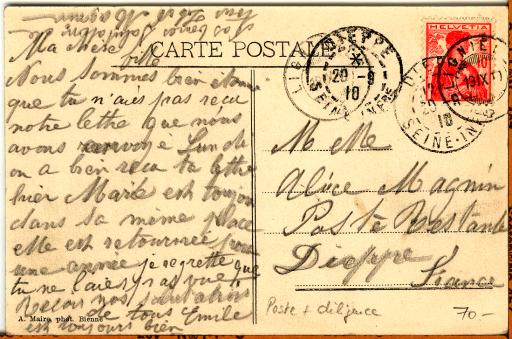 CARTE POSTALE
Ma chère
Nous sommes bien étonné
que tu n'aies pas reçu
notre lettre que nous
avons renvoyé Lundi
on a bien reçu ta lettre
hier Marie est toujour
dans sa même place
elle est retournée pour
une année je regrette que
tu ne l'aies pas vue
Reçois nos salutations
de tous Emile
est toujours bien
A. Maire, phot. Bienne
HELVETIA
10
DIEPPE
20 - 9
10
SEINE-INFRE
DIEPPE
20 9
10
SEINE-INFRE
LIGNIÈRES
19.IX.10
M Mlle
Alice Magnin
Poste Restante
Dieppe
France
Poste + diligence
70.-